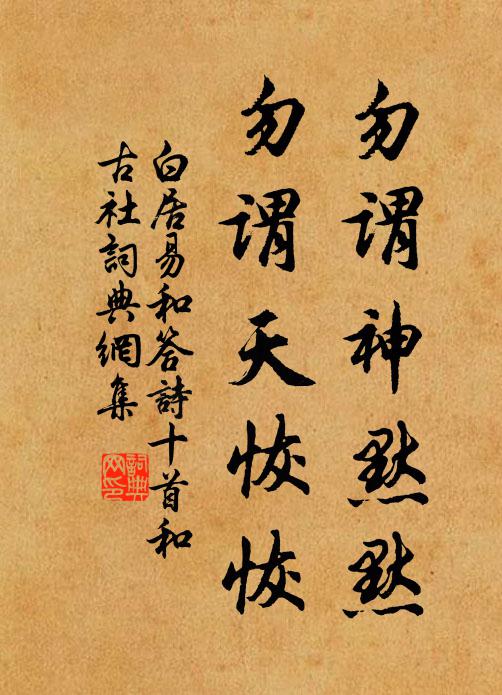 勿謂神黙黙
勿謂天恢恢
白居易和答詩十首和
古社詞典網集
詞典
网印